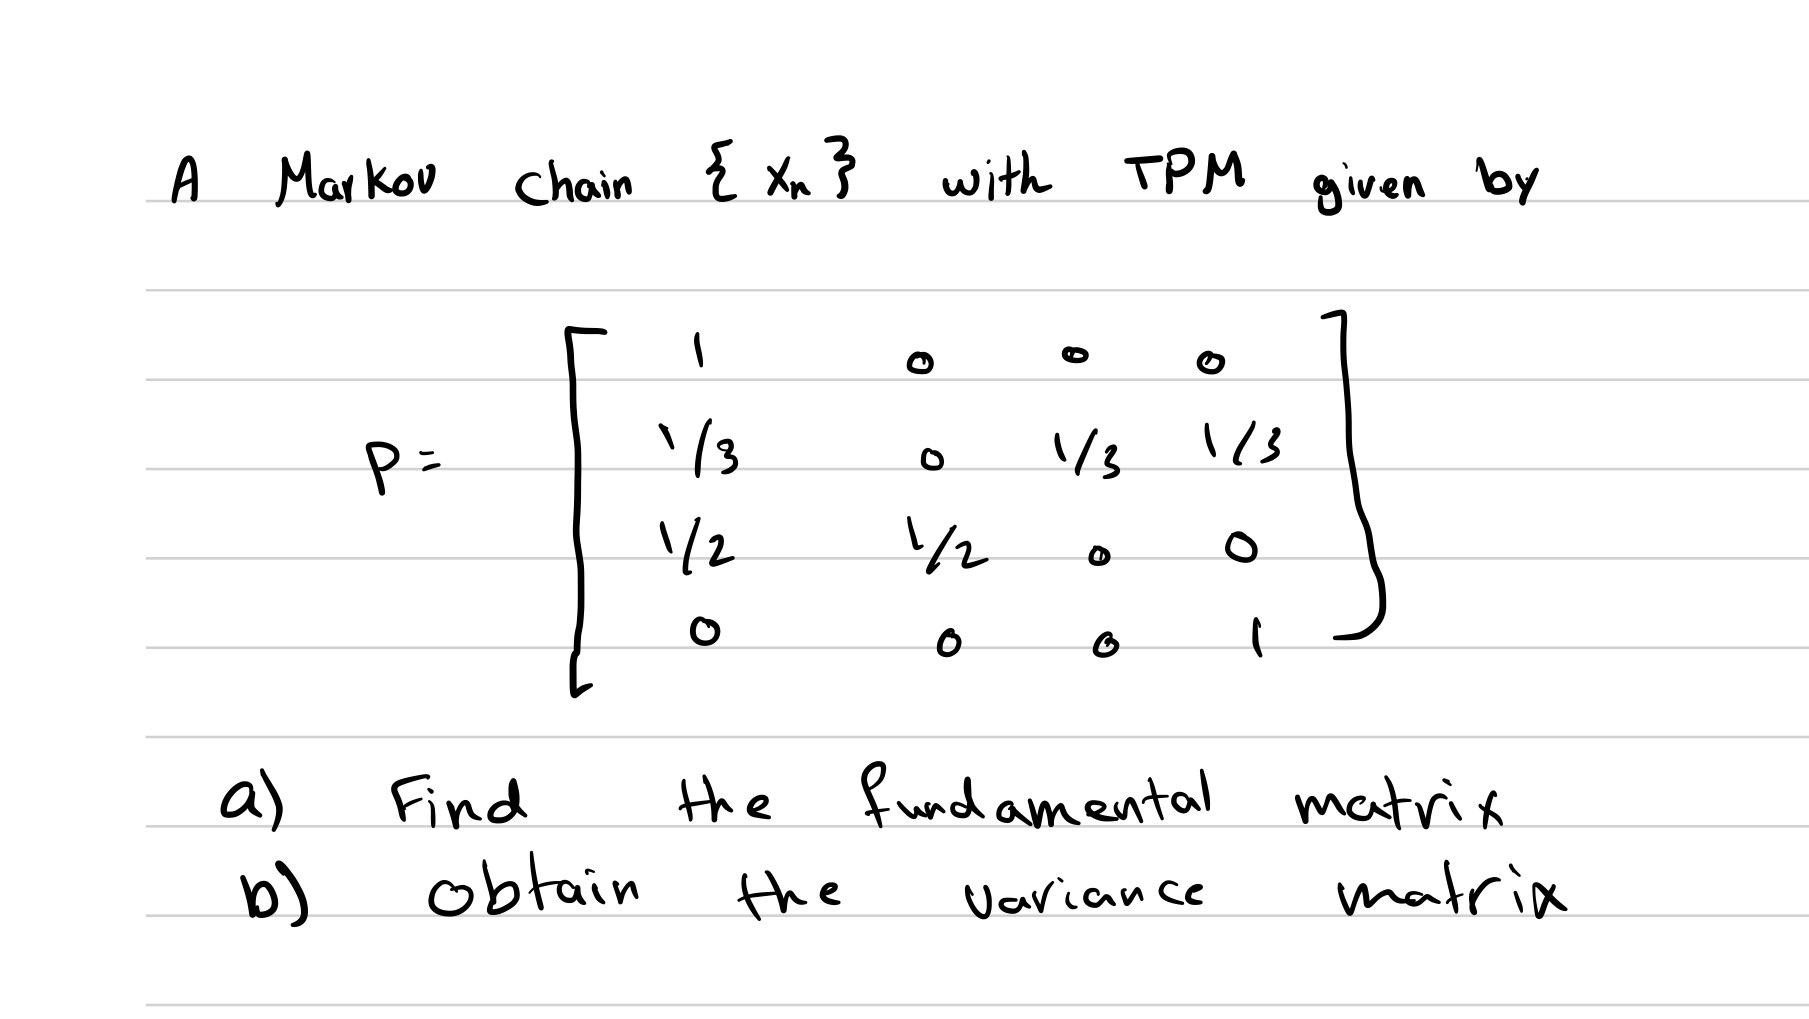 A Markov chain {Xn} with TPM given by
P = [ 1 0 0 0
1/3 0 1/3 1/3
1/2 1/2 0 0
0 0 0 1 ]
a) Find the fundamental matrix
b) obtain the variance matrix